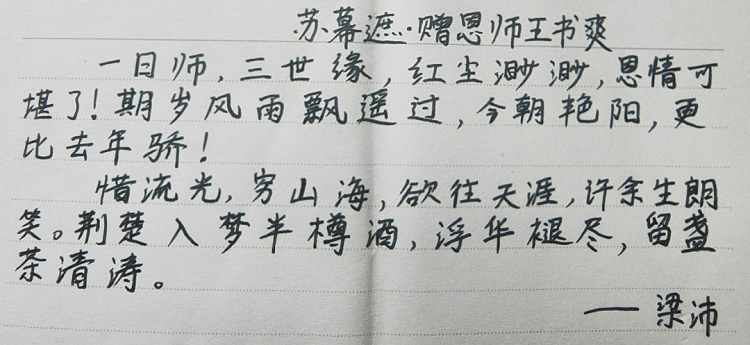 苏幕遮·赠恩师王书爽
一日师，三世缘，红尘渺渺，恩情可
堪了！期岁风雨飘遥过，今朝艳阳，更
比去年骄！
惜流光，穷山海，欲往天涯，许余生朗
笑。荆楚入梦半樽酒，浮华褪尽，留盏
茶清涛。
——梁沛